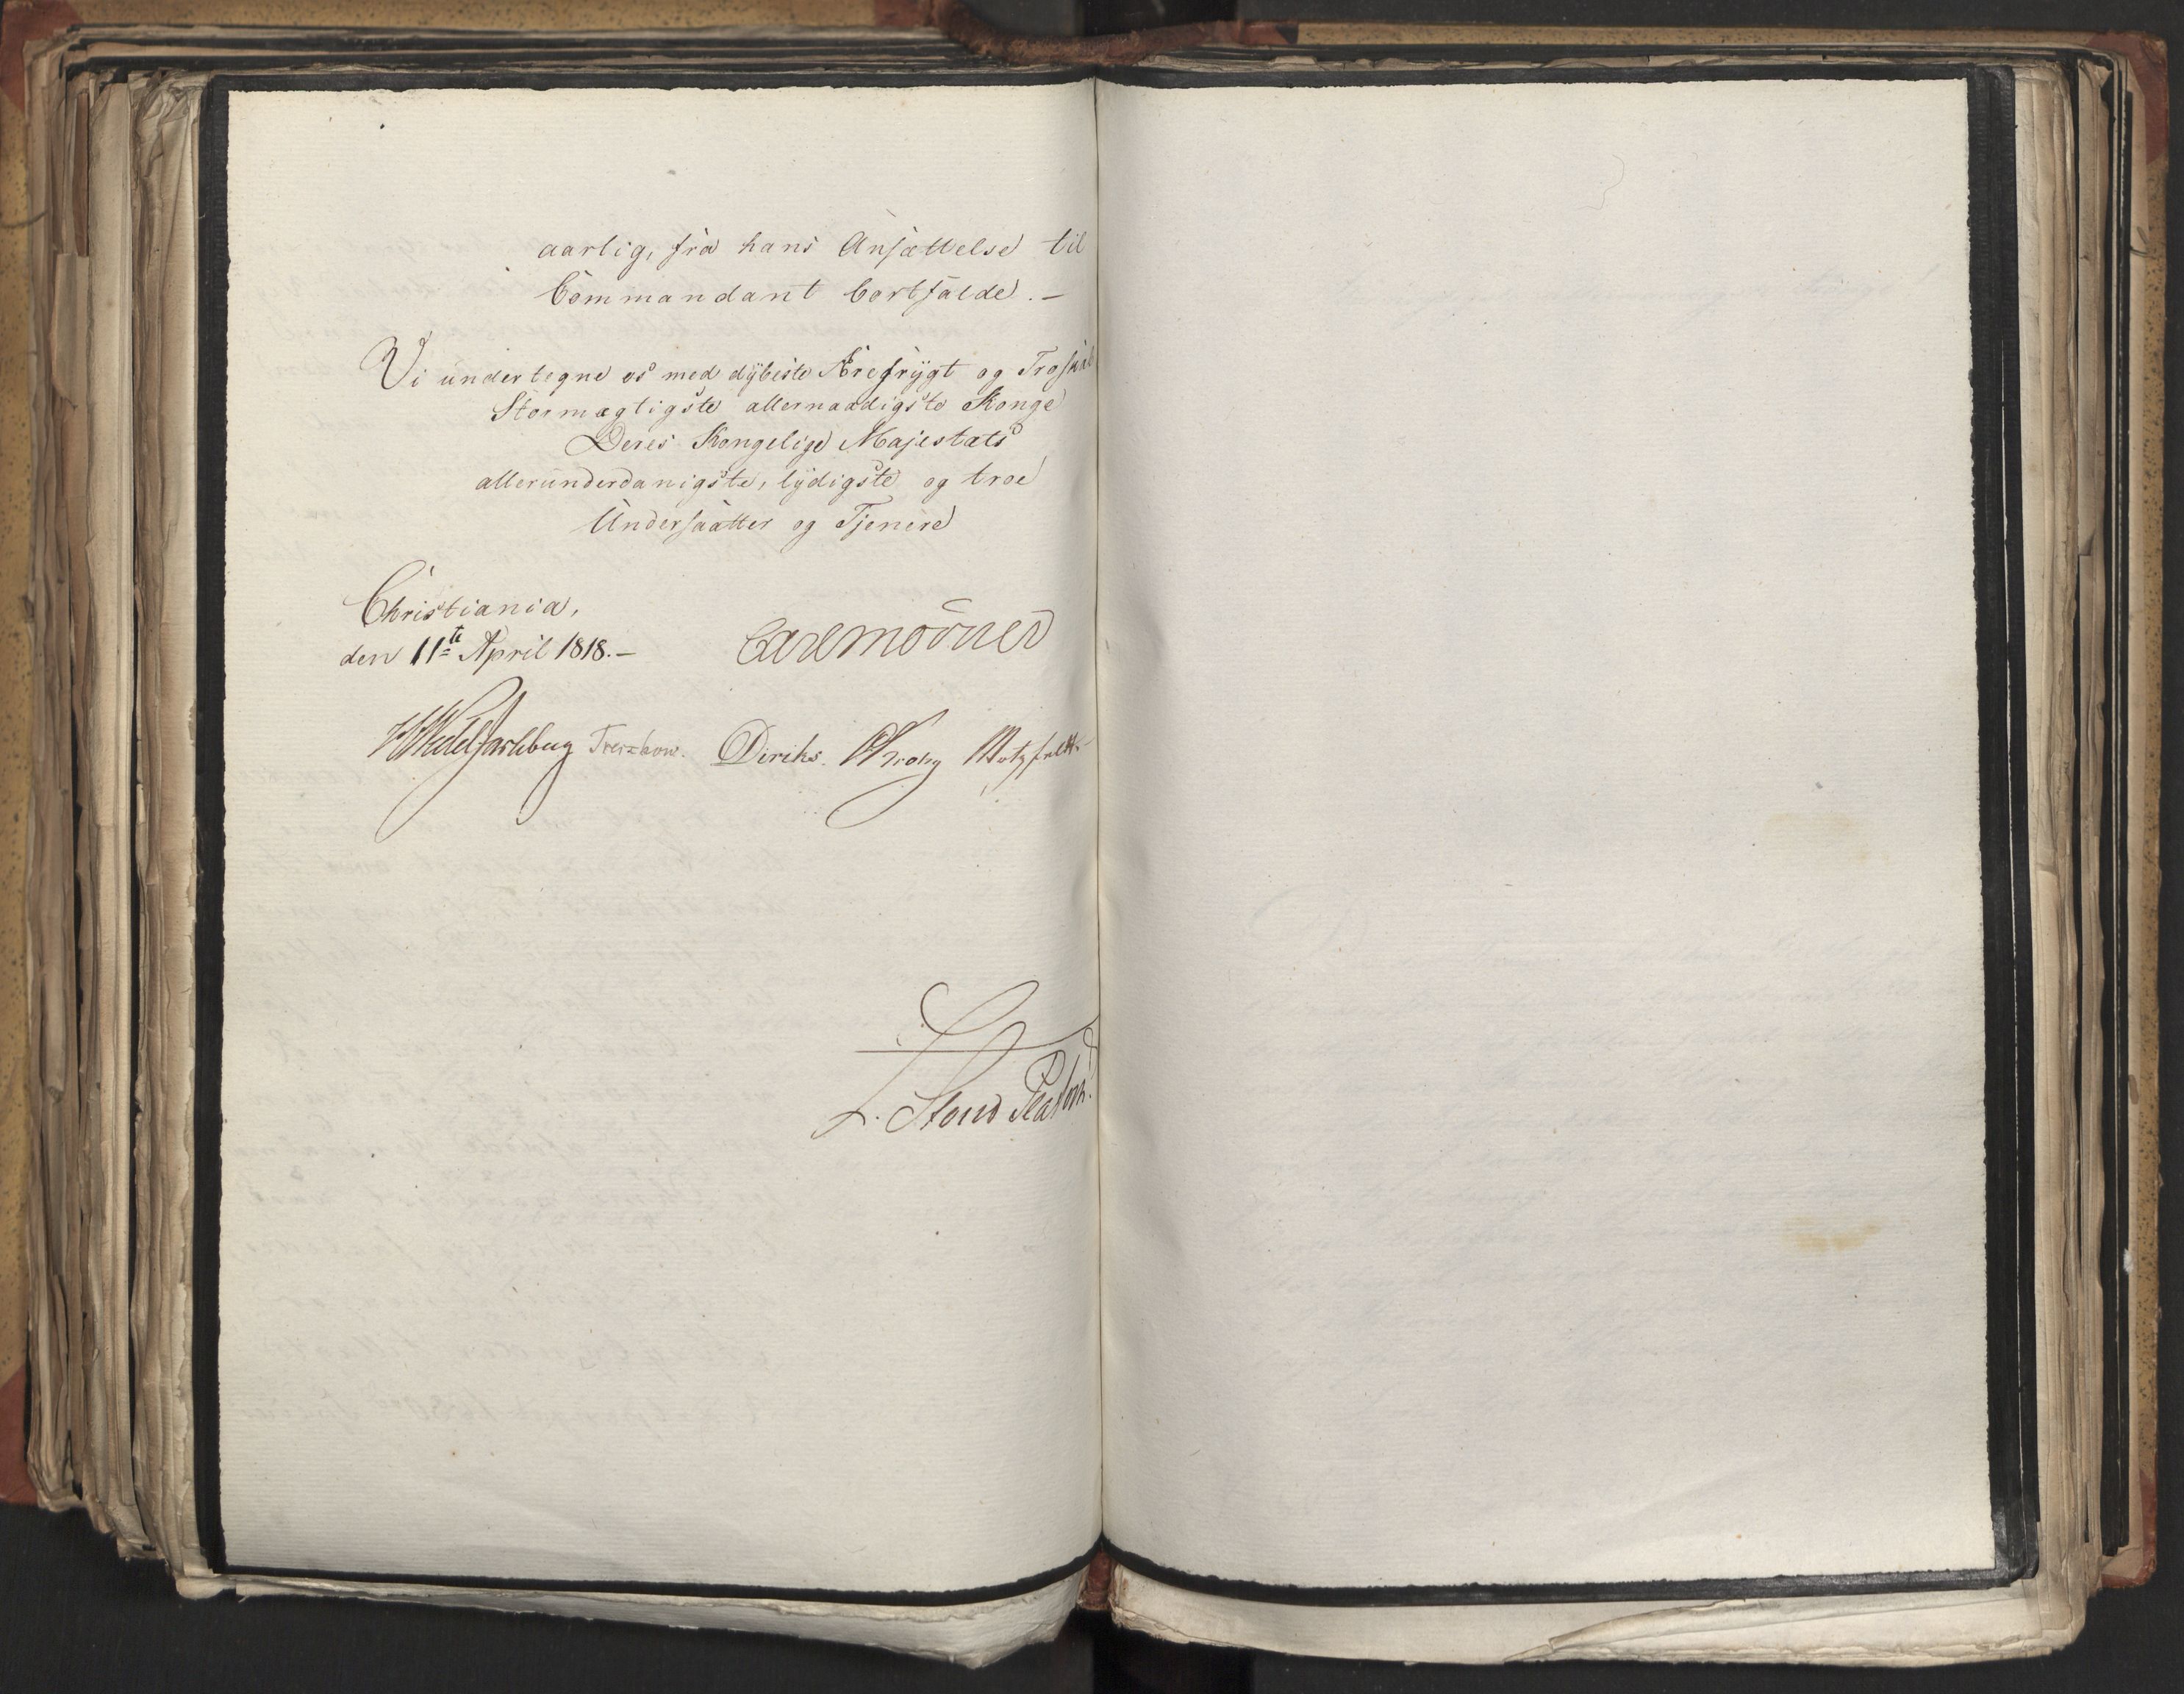 aarlig, fra hans Ansættelse til
Commandant bortfalde. –
Vi undertegne os med dybeste Ærefrygt og Troskab
Stormægtigste allernaadigste Konge
Deres Kongelige Majestæts
allerunderdanigste, lydigste og troe
Undersaatter og Tjenere
Christiania,
den 11te April 1818. –
Carl Mörner
HWedel Jarlsberg Treschow. Diriks. CKrohg Motzfeldt
L. Stoud Platou.